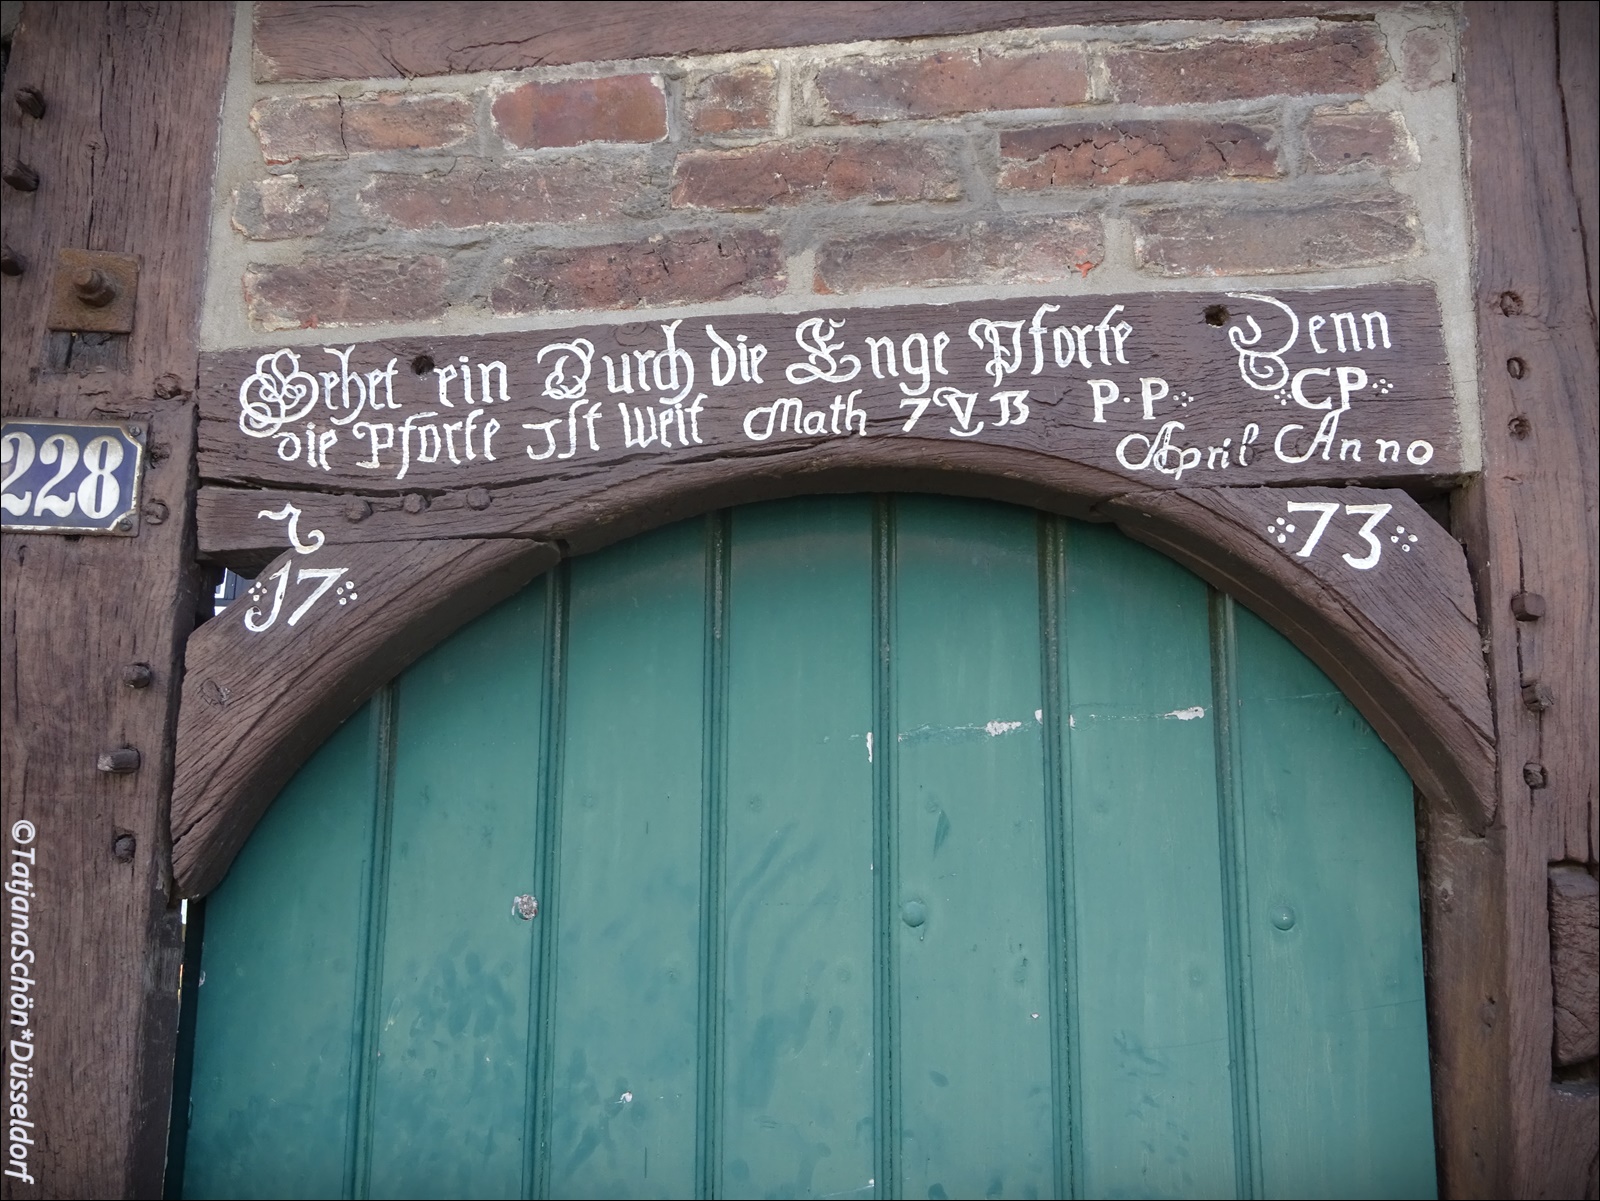 Gehet ein Durch die Enge Pforte Denn
die Pforte Jst Weit Math 7 V 13 P.P. CP
April Anno
17 73
228
©TatjanaSchön*Düsseldorf